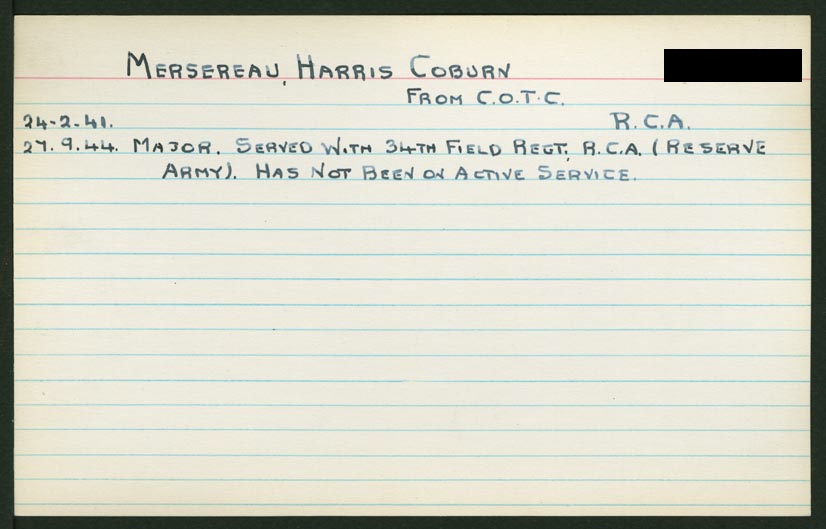 MERSEREAU, HARRIS COBURN
FROM C.O.T.C.
24-2-41. R.C.A.
27.9.44. MAJOR. SERVED WITH 34TH FIELD REGT, R.C.A. (RESERVE
ARMY). HAS NOT BEEN ON ACTIVE SERVICE.